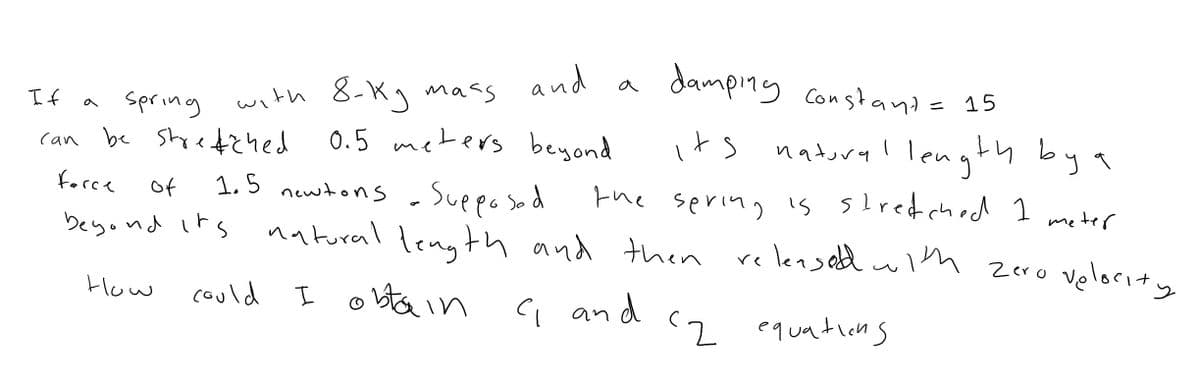 If a spring with 8-Kg mass and a damping constant = 15
can be stretched 0.5 meters beyond its natural length by a
force of 1.5 newtons. Supposod the spring is stretched 1 meter
beyond its natural length and then releasedd with zero velocity
How could I obtain c1 and c2 equations